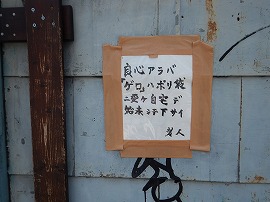 良心アラバ
「ゲロ」ハポリ袋
ニ受ケ自宅デ
始末シテ下サイ
老人